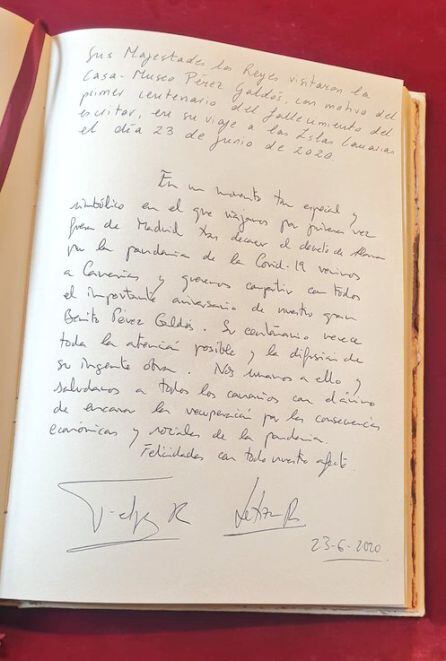 Sus Majestades los Reyes visitaron la
Casa-Museo Pérez Galdós, con motivo del
primer centenario del fallecimiento del
escritor, en su viaje a las Islas Canarias
el día 23 de junio de 2020.
En un momento tan especial y
simbólico en el que viajamos por primera vez
fuera de Madrid tras decaer el decreto de alarma
por la pandemia de la Covid-19 venimos
a Canarias y queremos compartir con todos
el importante aniversario de nuestro gran
Benito Pérez Galdós. Su centenario merece
toda la atención posible y la difusión de
su ingente obra. Nos unimos a ello y
saludamos a todos los canarios con el ánimo
de encarar la recuperación por las consecuencias
económicas y sociales de la pandemia.
Felicidades con todo nuestro afecto.
Felipe R Letizia R.
23-6-2020